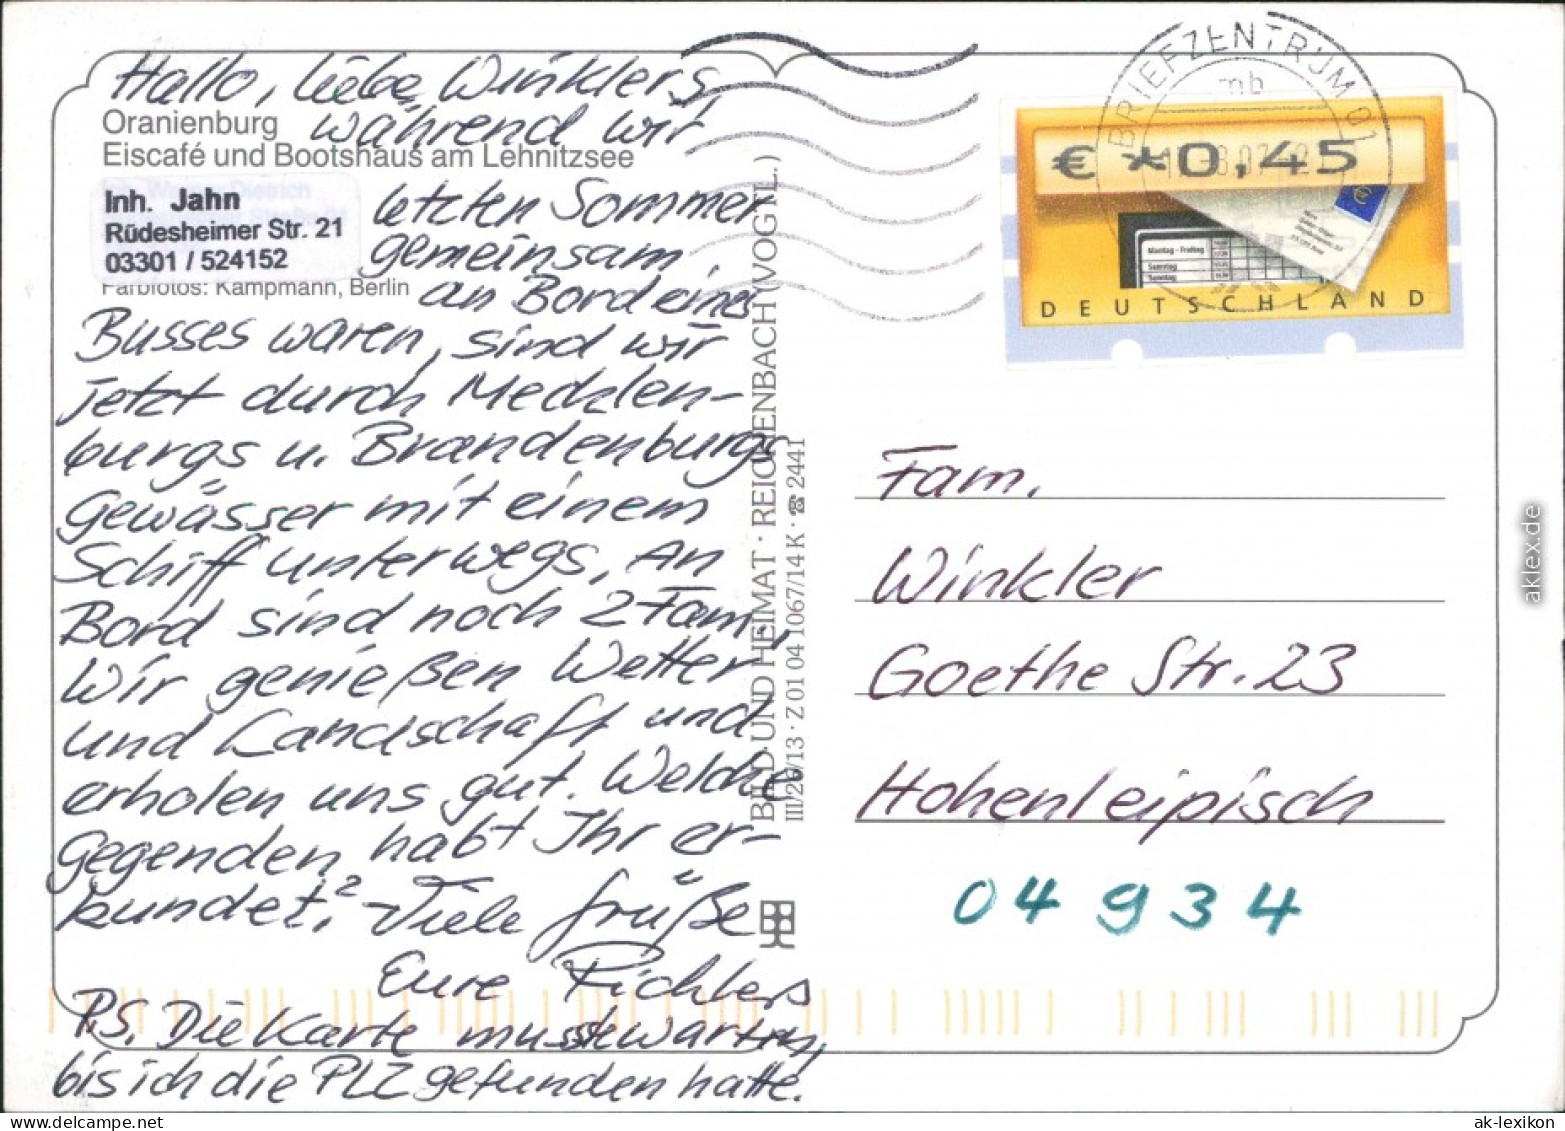 Hallo, liebe Winklers,
während wir
Oranienburg
Eiscafé und Bootshaus am Lehnitzsee
Inh. Jahn
Rüdesheimer Str. 21
03301 / 524152
Farbfotos: Kampmann, Berlin
letzten Sommer
gemeinsam
an Bord eines
Busses waren, sind wir
jetzt durch Mecklen-
burgs u. Brandenburgs
Gewässer mit einem
Schiff unterwegs. An
Bord sind noch 2 Fam.,
Wir genießen Wetter
und Landschaft und
erholen uns gut. Welche
Gegenden habt Ihr er-
kundet? Viele Grüße
Eure Richters
P.S. Die Karte musste warten,
bis ich die PLZ gefunden hatte.
BILD UND HEIMAT · REICHENBACH (VOGTL.)
III/26/13 · Z 01 04 1067/14 K · ☎ 2441
BRIEFZENTRUM 01
mb
€ *0,45
Montag - Freitag
Samstag
Sonntag
DEUTSCHLAND
Fam.
Winkler
Goethe Str. 23
Hohenleipisch
04934
aklex.de
ak-lexikon